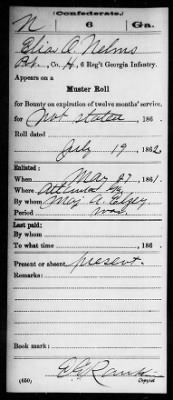 (Confederate.)
N 6 Ga.
Elias A. Nelms
Pvt., Co. H, 6 Reg't Georgia Infantry.
Appears on a
Muster Roll
for Bounty on expiration of twelve months' service,
for Not stated, 186 .
Roll dated
July 19, 1862
Enlisted:
When May 27, 1861.
Where
By whom Maj A.
Period war.
Last paid:
By whom
To what time , 186 .
Present or absent present.
Remarks:
Book mark:
(650) Copyist.